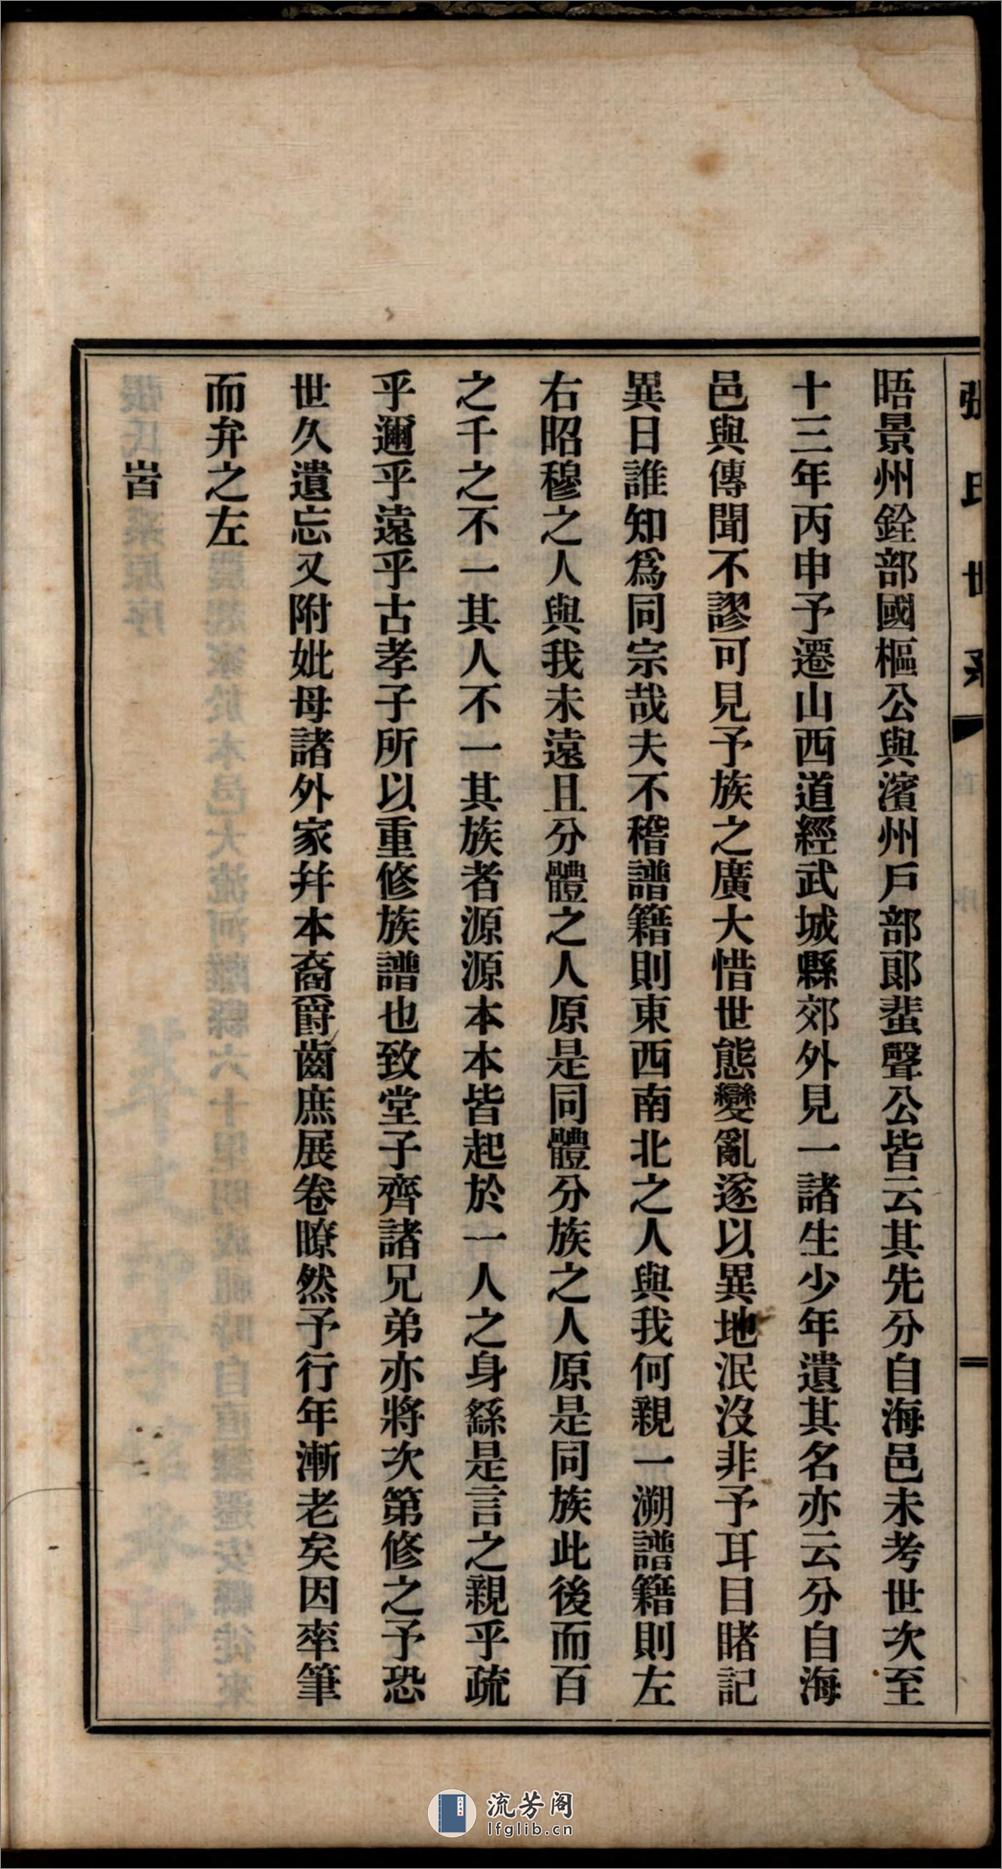 張氏世系
晤景州銓部國樞公與濱州戶部郎蜚聲公皆云其先分自海邑未考世次至
十三年丙申予遷山西道經武城縣郊外見一諸生少年遺其名亦云分自海
邑與傳聞不謬可見予族之廣大惜世態變亂遂以異地泯沒非予耳目睹記
異日誰知爲同宗哉夫不稽譜籍則東西南北之人與我何親一溯譜籍則左
右昭穆之人與我未遠且分體之人原是同體分族之人原是同族此後而百
之千之不一其人不一其族者源源本本皆起於一人之身繇是言之親乎疏
乎邇乎遠乎古孝子所以重修族譜也致堂子齊諸兄弟亦將次第修之予恐
世久遺忘又附妣母諸外家幷本裔爵齒庶展卷瞭然予行年漸老矣因率筆
而弁之左
旹
流芳阁
lfglib.cn